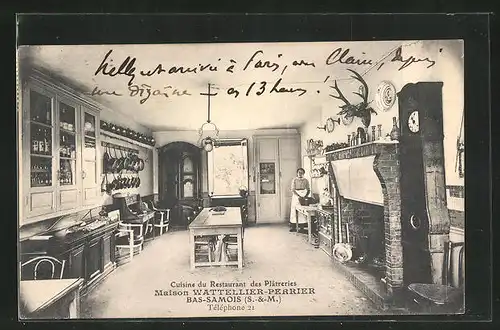 Nelly est arrivée à Paris, avec Claire, depuis
une dizaine
13
Cuisine du Restaurant des Plâtreries
Maison WATTELLIER-PERRIER
BAS-SAMOIS (S.-&-M.)
Téléphone 21